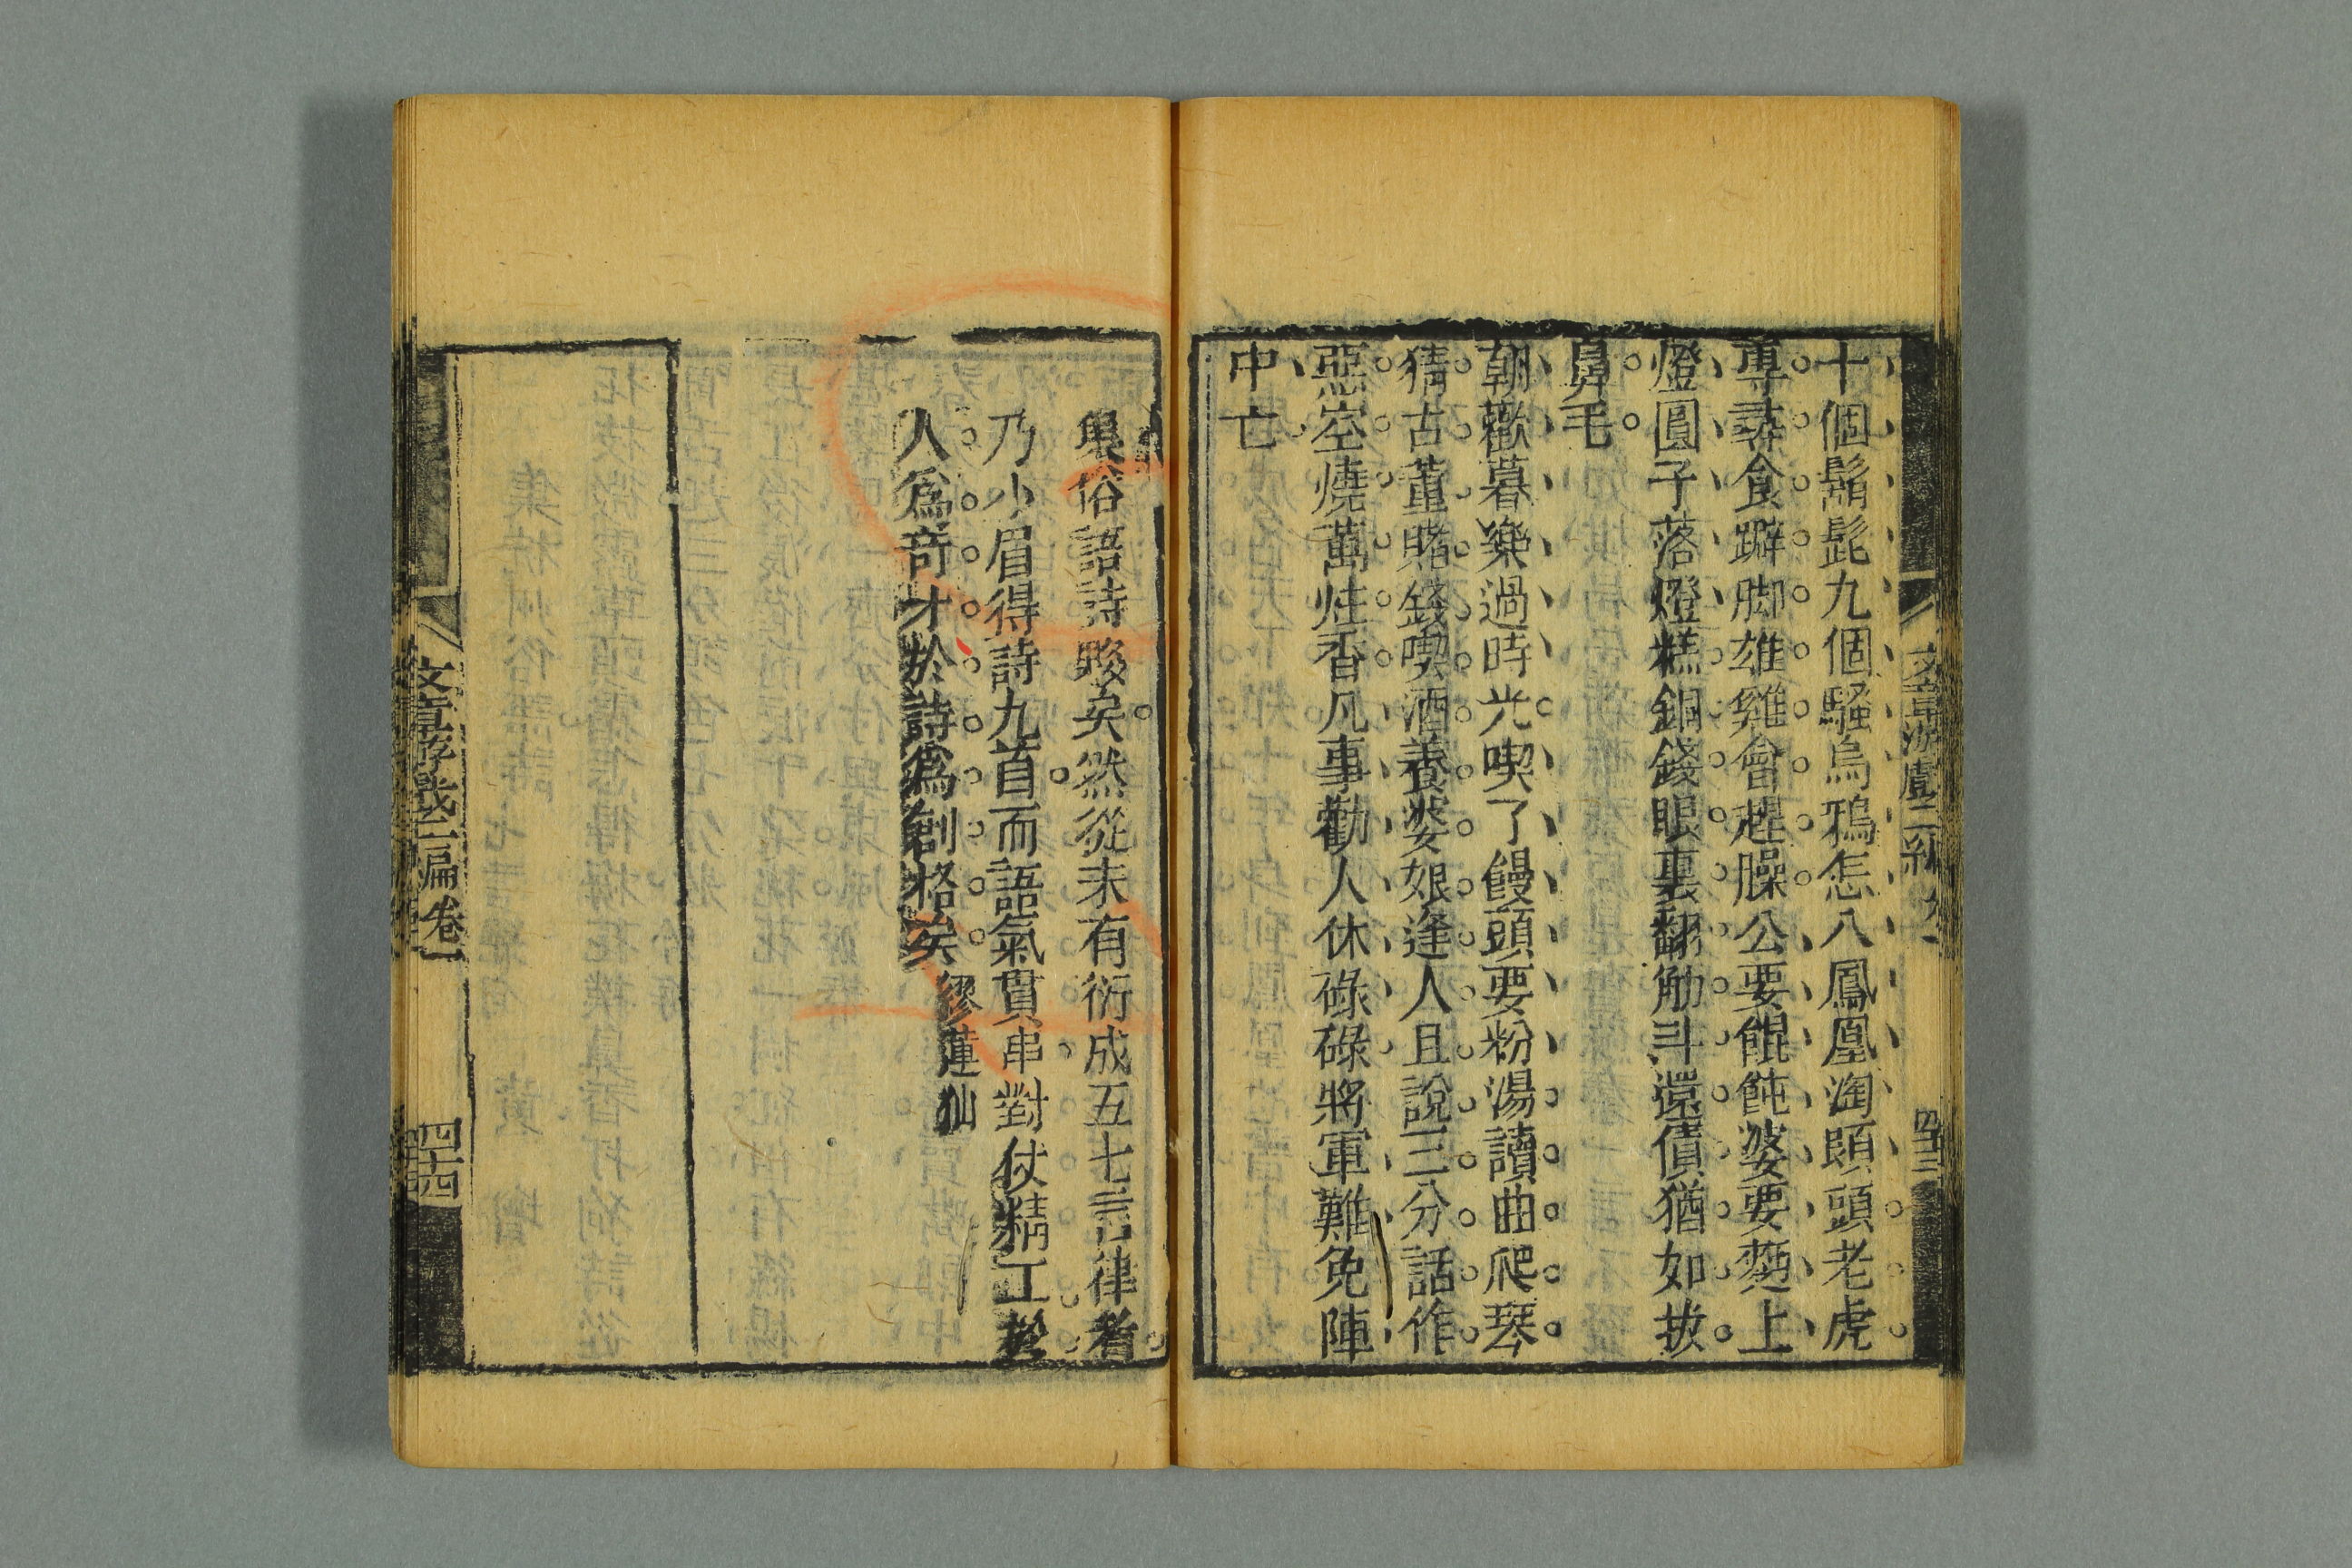 十個鬍髭九個騷烏鴉怎入鳳凰淘頤頭老虎
專尋食躃脚雄雞會趕臊公要餛飩婆要麪上
燈圓子落燈糕銅錢眼裏翻觔斗還債猶如拔
鼻毛
朝歡暮樂過時光喫了饅頭要粉湯讀曲爬琴
猜古董賭錢喫酒養婆娘逢人且說三分話作
惡空燒萬炷香凡事勸人休碌碌將軍難免陣
中亡
文章游戲二編 卷一
四十三
俗語詩夥矣然從未有衍成五七言律者
乃小眉得詩九首而語氣貫串對仗精工於
人爲奇才於詩爲創格矣
繆蓮仙
文章游戲二編 卷一
四十四